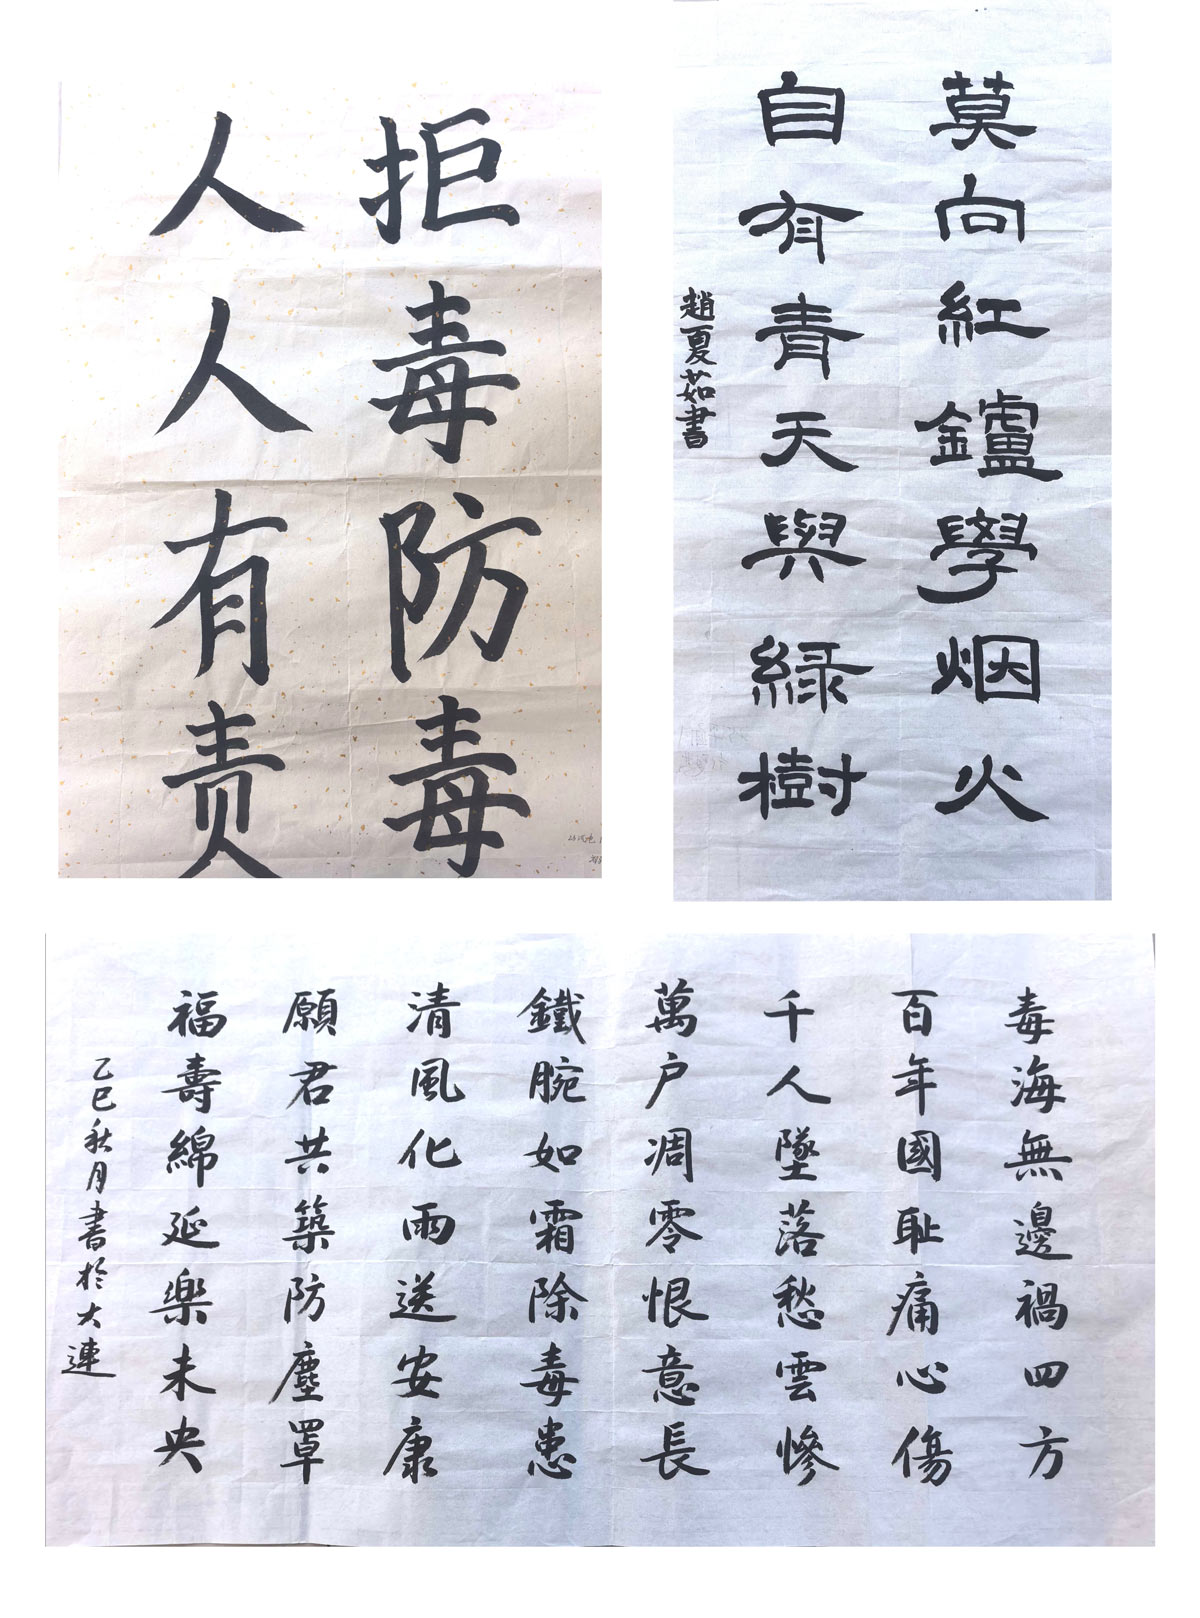 拒毒防毒
人人有责
莫向紅鑪學烟火
自有青天與緑樹
趙夏茹書
毒海無邊禍四方
百年國恥痛心傷
千人墜落愁雲慘
萬户凋零恨意長
鐵腕如霜除毒患
清風化雨送安康
願君共築防塵罩
福壽綿延樂未央
乙巳秋月書於大連